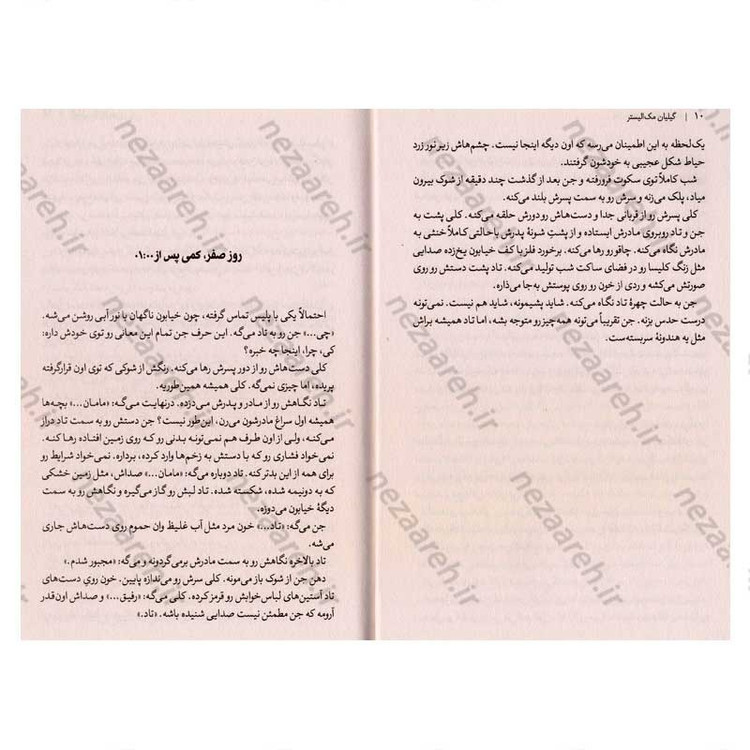 ۱۰ | گیلیان مک‌الیستر
یک‌لحظه به این اطمینان می‌رسه که اون دیگه اینجا نیست. چشم‌هاش زیر نور زرد
حیاط شکل عجیبی به خودشون گرفتند.
شب کاملاً توی سکوت فرورفته و جن بعد از گذشت چند دقیقه از شوک بیرون
میاد، پلک می‌زنه و سرش رو به سمت پسرش بلند می‌کنه.
کلی پسرش رو از قربانی جدا و دست‌هاش رو دورش حلقه می‌کنه. کلی پشت به
جن و تاد روبروی مادرش ایستاده و از پشتِ شونهٔ پدرش با حالتی کاملاً خنثی به
مادرش نگاه می‌کنه. چاقو رو رها می‌کنه. برخورد فلز با کف خیابون یخ‌زده صدایی
مثل زنگ کلیسا رو در فضای ساکت شب تولید می‌کنه. تاد پشت دستش رو روی
صورتش می‌کشه و ردی از خون رو روی پوستش به‌جا می‌ذاره.
جن به حالت چهرهٔ تاد نگاه می‌کنه. شاید پشیمونه، شاید هم نیست. نمی‌تونه
درست حدس بزنه. جن تقریباً می‌تونه همه‌چیز رو متوجه بشه، اما تاد همیشه براش
مثل یه هندونهٔ سربسته‌ست.
روز صفر، کمی پس از ۰۱:۰۰
احتمالاً یکی با پلیس تماس گرفته، چون خیابون ناگهان با نور آبی روشن می‌شه.
«چی...» جن رو به تاد می‌گه. این حرف جن تمام این معانی رو توی خودش داره:
کی، چرا، اینجا چه خبره؟
کلی دست‌هاش رو از دور پسرش رها می‌کنه. رنگش از شوکی که توی اون قرارگرفته
پریده، اما چیزی نمی‌گه. کلی همیشه همین‌طوریه.
تاد نگاهش رو از مادر و پدرش می‌دزده. درنهایت می‌گه: «مامان...» بچه‌ها
همیشه اول سراغ مادرشون می‌رن، این‌طور نیست؟ جن دستش رو به سمت تاد دراز
می‌کنه، ولی از اون طرف هم نمی‌تونه بدنی رو که روی زمین افتاده رها کنه.
نمی‌خواد فشاری رو که با دستش به زخم‌ها وارد کرده، برداره. نمی‌خواد شرایط رو
برای همه از این بدتر کنه. تاد دوباره می‌گه: «مامان...» صداش، مثل زمین خشکی
که دونیمه شده، شکسته شده. تاد لبش رو گاز می‌گیره و نگاهش رو به سمت
دیگهٔ خیابون می‌دوزه.
جن می‌گه: «تاد...» خون مرد مثل آب غلیظ وان حموم روی دست‌هاش جاری
می‌شه.
تاد بالاخره نگاهش رو به سمت مادرش برمی‌گردونه و می‌گه: «مجبور شدم.»
دهن جن از شوک باز می‌مونه. کلی سرش رو می‌ندازه پایین. خون روی دست‌های
تاد آستین‌های لباس خوابش رو قرمز کرده. کلی می‌گه: «رفیق...» و صداش اون‌قدر
آرومه که جن مطمئن نیست صدایی شنیده باشه. «تاد.»
nezaareh.ir